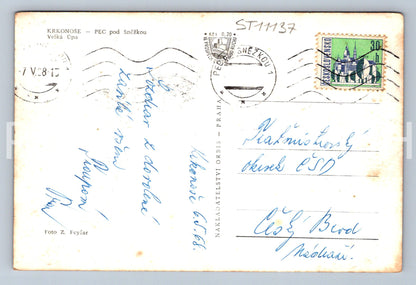 KRKONOŠE – PEC pod Sněžkou
Velká Úpa
ST11137
7 V. 68-1
PEC P. SNĚŽKOU 1
ČESKOSLOVENSKO
30 h
Krkonoše 6.5.68.
Pozdrav z dovolené
Zasílá všem
NAKLADATELSTVÍ ORBIS – PRAHA
okrsek ČSD
Český Brod
Nádraží.
Foto Z. Feyfar